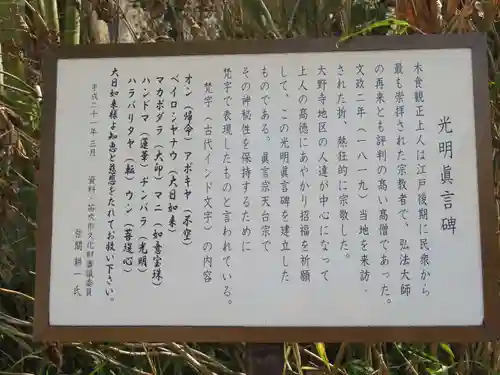 光明眞言碑
木食観正上人は江戸後期に民衆から
最も崇拝された宗教者で、弘法大師
の再来とも評判の高い高僧であった。
文政二年（一八一九）当地を来訪
された折、熱狂的に宗敬した。
大野寺地区の人達が中心になって
上人の高徳にあやかり招福を祈願
して、この光明眞言碑を建立した
ものである。眞言宗天台宗で
その神秘性を保持するために
梵字で表現したものと言われている。
梵字（古代インド文字）の内容
オン（帰命）アボキヤ（不空）
ベイロシヤナウ（大日如来）
マカボダラ（大印）マニ（如意宝珠）
ハンドマ（蓮華）ヂンバラ（光明）
ハラバリタヤ（転）ウン（菩提心）
大日如来様よ知恵と慈悲をたれてお救い下さい。
平成二十一年三月　資料 笛吹市文化財審議委員
耕一氏